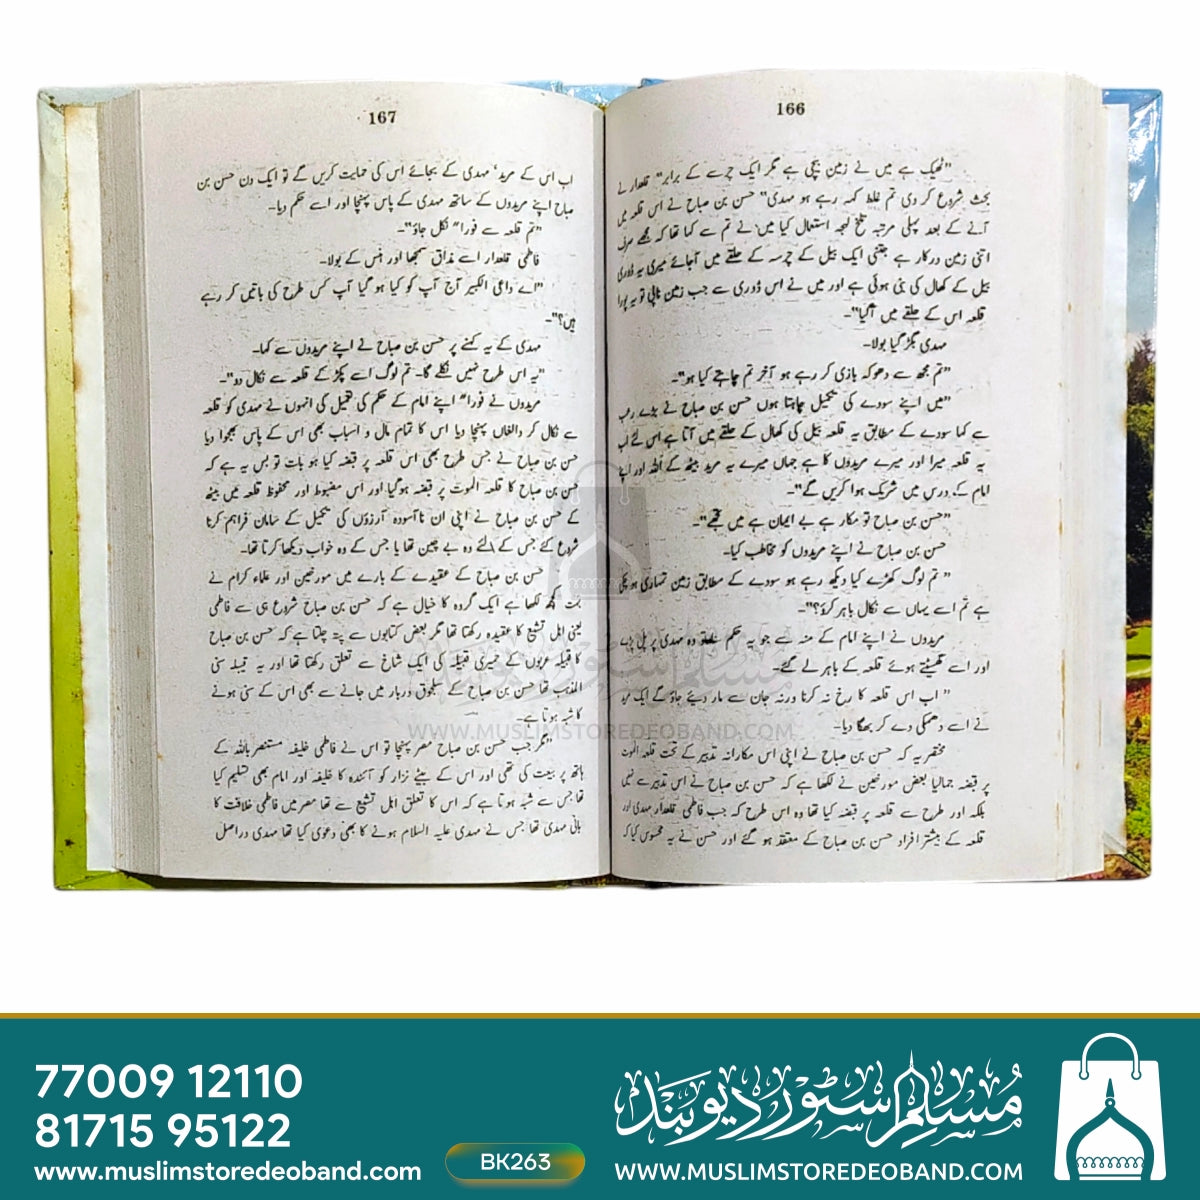 166
"ٹھیک ہے میں نے زمین بیچی ہے مگر ایک چرسے کے برابر" قلعدار نے
بحث شروع کر دی تم غلط کہہ رہے ہو مہدی" حسن بن صباح نے اس قلعہ میں
آنے کے بعد پہلی مرتبہ تلخ لہجہ استعمال کیا میں نے تم سے کہا تھا کہ مجھے صرف
اتنی زمین درکار ہے جتنی ایک بیل کے چرسہ کے حلقے میں آجائے میری یہ ڈوری
بیل کے کھال کی بنی ہوئی ہے اور میں نے اس ڈوری سے جب زمین ناپی تو یہ پورا
قلعہ اس کے حلقے میں آگیا"۔
مہدی بگڑ گیا بولا۔
"تم مجھ سے دھوکہ بازی کر رہے ہو آخر تم چاہتے کیا ہو"۔
"میں اپنے سودے کی تکمیل چاہتا ہوں حسن بن صباح نے بڑے رعب
سے کہا سودے کے مطابق یہ قلعہ بیل کی کھال کے حلقے میں آتا ہے اس لئے اب
یہ قلعہ میرا اور میرے مریدوں کا ہے جہاں میرے یہ مرید بیٹھ کے اللہ اور اپنے
امام کے درس میں شریک ہوا کریں گے"۔
"حسن بن صباح تو مکار ہے بے ایمان ہے میں تجھے"۔
حسن بن صباح نے اپنے مریدوں کو مخاطب کیا۔
"تم لوگ کھڑے کیا دیکھ رہے ہو سودے کے مطابق زمین تمہاری ہو چکی
ہے تم اسے یہاں سے نکال باہر کرو؟"۔
مریدوں نے اپنے امام کے منہ سے جو یہ حکم سنا تو وہ مہدی پر پل پڑے
اور اسے گھسیٹتے ہوئے قلعہ کے باہر لے گئے۔
"اب اس قلعہ کا رخ نہ کرنا ورنہ جان سے مار دیئے جاؤ گے ایک مرید
نے اسے دھمکی دے کر بھگا دیا۔
مختصر یہ کہ حسن بن صباح نے اپنی اس مکارانہ تدبیر کے تحت قلعہ الموت
پر قبضہ جمالیا بعض مورخین نے لکھا ہے کہ حسن بن صباح نے اس تدبیر سے نہیں
بلکہ اور طرح سے قلعہ پر قبضہ کیا تھا وہ اس طرح کہ جب فاطمی قلعدار مہدی اور
قلعہ کے بیشتر افراد حسن بن صباح کے معتقد ہو گئے اور حسن نے یہ محسوس کیا کہ
167
اب اس کے مرید' مہدی کے بجائے اس کی حمایت کریں گے تو ایک دن حسن بن
صباح اپنے مریدوں کے ساتھ مہدی کے پاس پہنچا اور اسے حکم دیا۔
"تم قلعہ سے فورا" نکل جاؤ"۔
فاطمی قلعدار اسے مذاق سمجھا اور ہنس کے بولا۔
"اے داعی الکبیر آج آپ کو کیا ہو گیا آپ کس طرح کی باتیں کر رہے
ہیں؟"۔
مہدی کے یہ کہنے پر حسن بن صباح نے اپنے مریدوں سے کہا۔
"یہ اس طرح نہیں نکلے گا۔ تم لوگ اسے پکڑ کے قلعہ سے نکال دو"۔
مریدوں نے فورا" اپنے امام کے حکم کی تعمیل کی انہوں نے مہدی کو قلعہ
سے نکال کر دالغاں پہنچا دیا اس کا تمام مال و اسباب بھی اس کے پاس بھجوا دیا
حسن بن صباح نے جس طرح بھی اس قلعہ پر قبضہ کیا ہو بات تو بس یہ ہے کہ
حسن بن صباح کا قلعہ الموت پر قبضہ ہوگیا اور اس مضبوط اور محفوظ قلعہ میں بیٹھ
کے حسن بن صباح نے اپنی ان ناآسودہ آرزؤں کی تکمیل کے سامان فراہم کرنا
شروع کئے جس کے لئے وہ بے چین تھا یا جس کے وہ خواب دیکھا کرتا تھا۔
حسن بن صباح کے عقیدے کے بارے میں مورخین اور علماء کرام نے
بہت کچھ لکھا ہے ایک گروہ کا خیال ہے کہ حسن بن صباح شروع ہی سے فاطمی
یعنی اہل تشیع کا عقیدہ رکھتا تھا مگر بعض کتابوں سے پتہ چلتا ہے کہ حسن بن صباح
کا قبیلہ عربوں کے حمیری قبیلہ کی ایک شاخ سے تعلق رکھتا تھا اور یہ قبیلہ سنی
المذہب تھا حسن بن صباح کے سلجوق دربار میں جانے سے بھی اس کے سنی ہونے
کا شبہ ہوتا ہے۔
"مگر جب حسن بن صباح مصر پہنچا تو اس نے فاطمی خلیفہ مستنصر باللہ کے
ہاتھ پر بیعت کی تھی اور اس کے بیٹے نزار کو آئندہ کا خلیفہ اور امام بھی تسلیم کیا
تھا جس سے شبہ ہوتا ہے کہ اس کا تعلق اہل تشیع سے تھا مصر میں فاطمی خلافت کا
بانی مہدی تھا جس نے مہدی علیہ السلام ہونے کا بھی دعویٰ کیا تھا مہدی دراصل
مسلم سٹور دیوبند
WWW.MUSLIMSTOREDEOBAND.COM
77009 12110
81715 95122
www.muslimstoredeoband.com
BK263
مسلم سٹور دیوبند
WWW.MUSLIMSTOREDEOBAND.COM